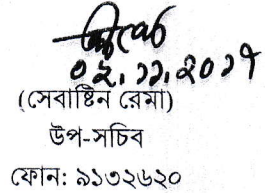 ০২.১১.২০১৭
(সেবাষ্টিন রেমা)
উপ-সচিব
ফোন: ৯১৩২৬২০